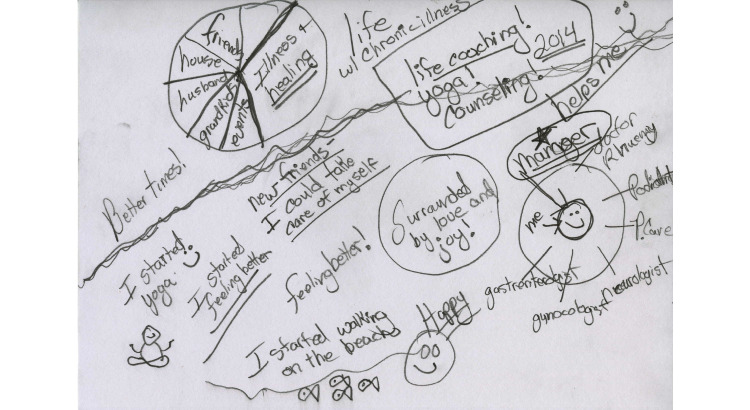 life
w/ chronic illness
friends
house
husband
grandkids
events
Illness +
healing
life coaching!
yoga!
counseling!
2014
helps me
Better times!
new friends-
I could take
care of myself
Surrounded
by love and
joy!
manager
me
P.Care
neurologist
gynocologist
I started
yoga.
I started
feeling better
feeling better!
I started walking
on the beach
Happy